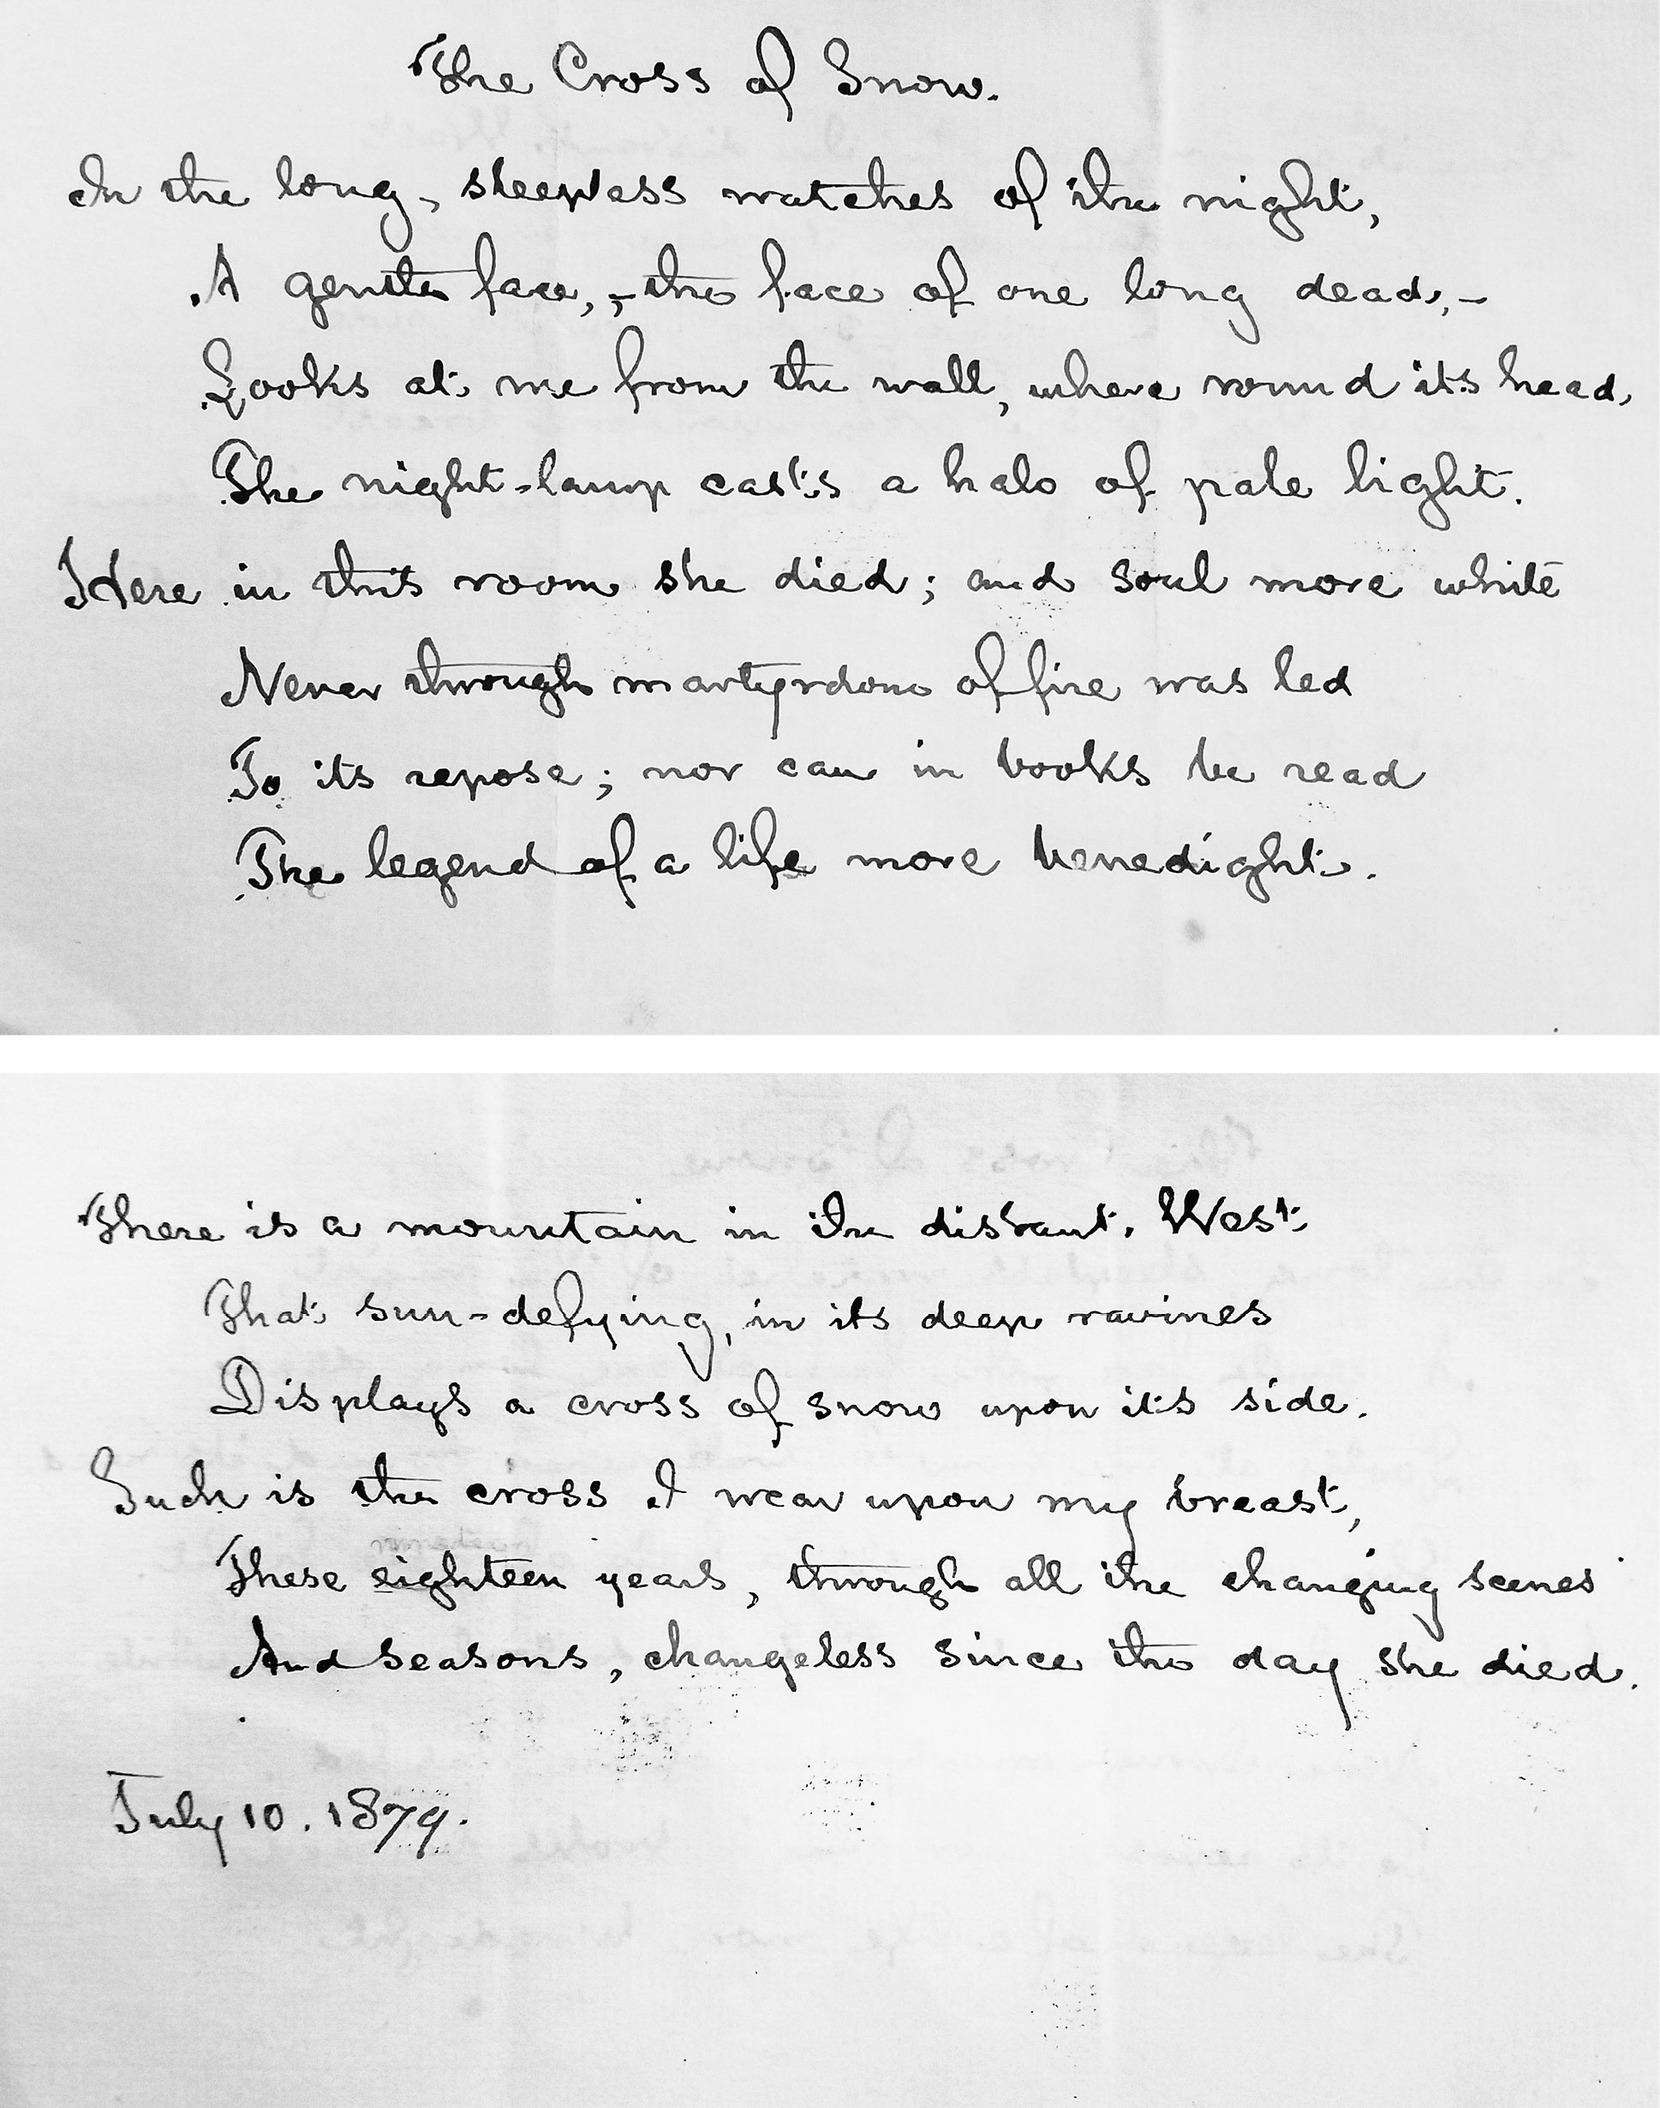 The Cross of Snow.
In the long, sleepless watches of the night,
A gentle face, – the face of one long dead, –
Looks at me from the wall, where round its head,
The night-lamp casts a halo of pale light.
Here in this room she died; and soul more white
Never through martyrdom of fire was led
To its repose; nor can in books be read
The legend of a life more benedight.
There is a mountain in the distant West
That sun-defying, in its deep ravines
Displays a cross of snow upon its side.
Such is the cross I wear upon my breast,
These eighteen years, through all the changing scenes
And seasons, changeless since the day she died.
July 10. 1879.